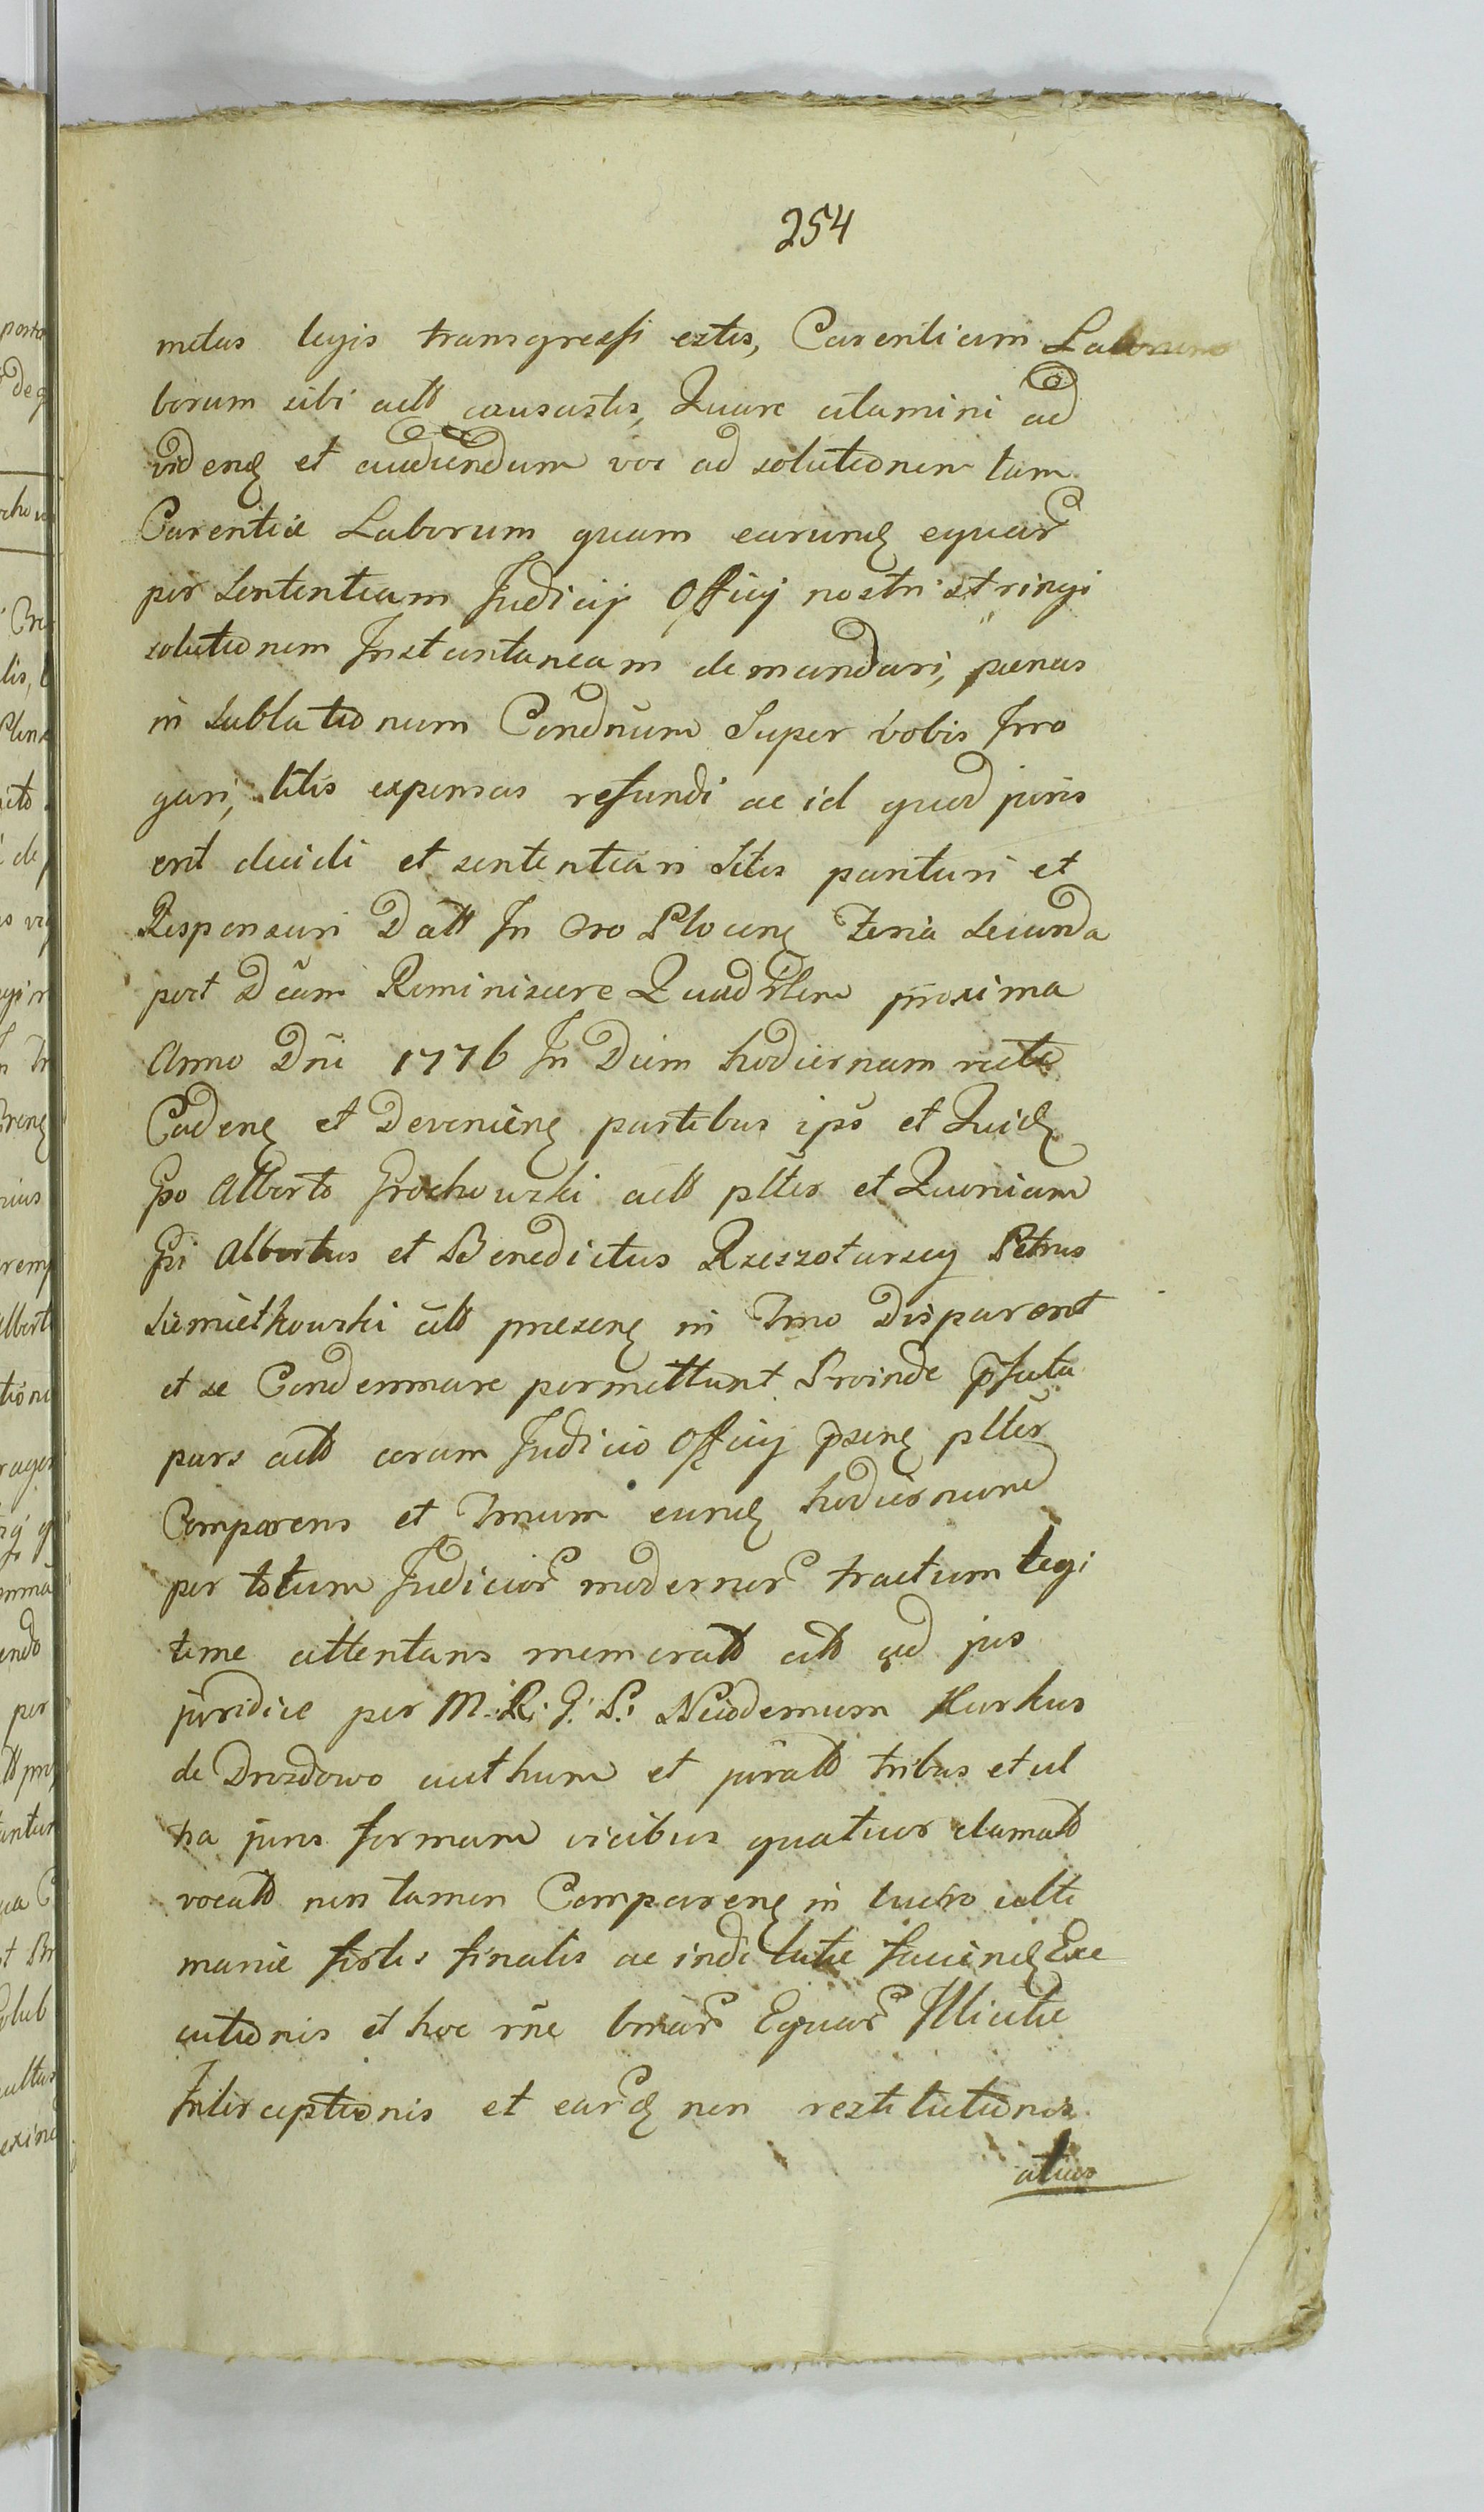 254
metas legis transgressi estis, Carentiam Laborum
borum sibi actō causastis, Quare citamini ad
videnḍ et audiendum vos ad solutionem tam
Carentiæ Laborum quam earunḍ equar̃
per Sententiam Judicij Officij nostri stringi
solutionem Instantaneam demandari, pænas
in Sublationum Condnūm Super vobis Irro
gari, litis expensas refundi ac id quod juris
erit decidi et sententiari Sitis parituri et
Responsuri Datt In Cro Plocenȝ Feria Secunda
post Dcam Reminiscere Quadrlem proxima
Anno Dni 1776 In Diem hodiernam recte
Cadenȝ et Devenienȝ partibus ips̄ et Quidȝ
Gso Alberto Grochowski actō plter et Quoniam
Gsi Albertus et Benedictus Rzeszotarscy Petrus
Siemiethowski citō præsenȝ in Tmo Disparent
et se Condemnare permittunt Proinde p̄fata
pars actō coram Judicio Officij p̄senȝ plter
Comparens et Tmum eundȝ hodiernum
per totum Judicior̃ modernor̃ tractum legi
time attentans memoratō citō ad jus
juridice per M. R. G. P. Nicodemum Karkus
de Drozdowo authum et juratō tribus et ul
tra juris formam vicibus quatuor clamatō
vocatō non tamen Comparenȝ in lucro ulti
mariæ sortis finalis ac indilatæ faciendȝ Exe
cutionis et hoc rñe binar̃ Equar̃ Illicitæ
Interceptionis et ear̃dȝ non restitutionis